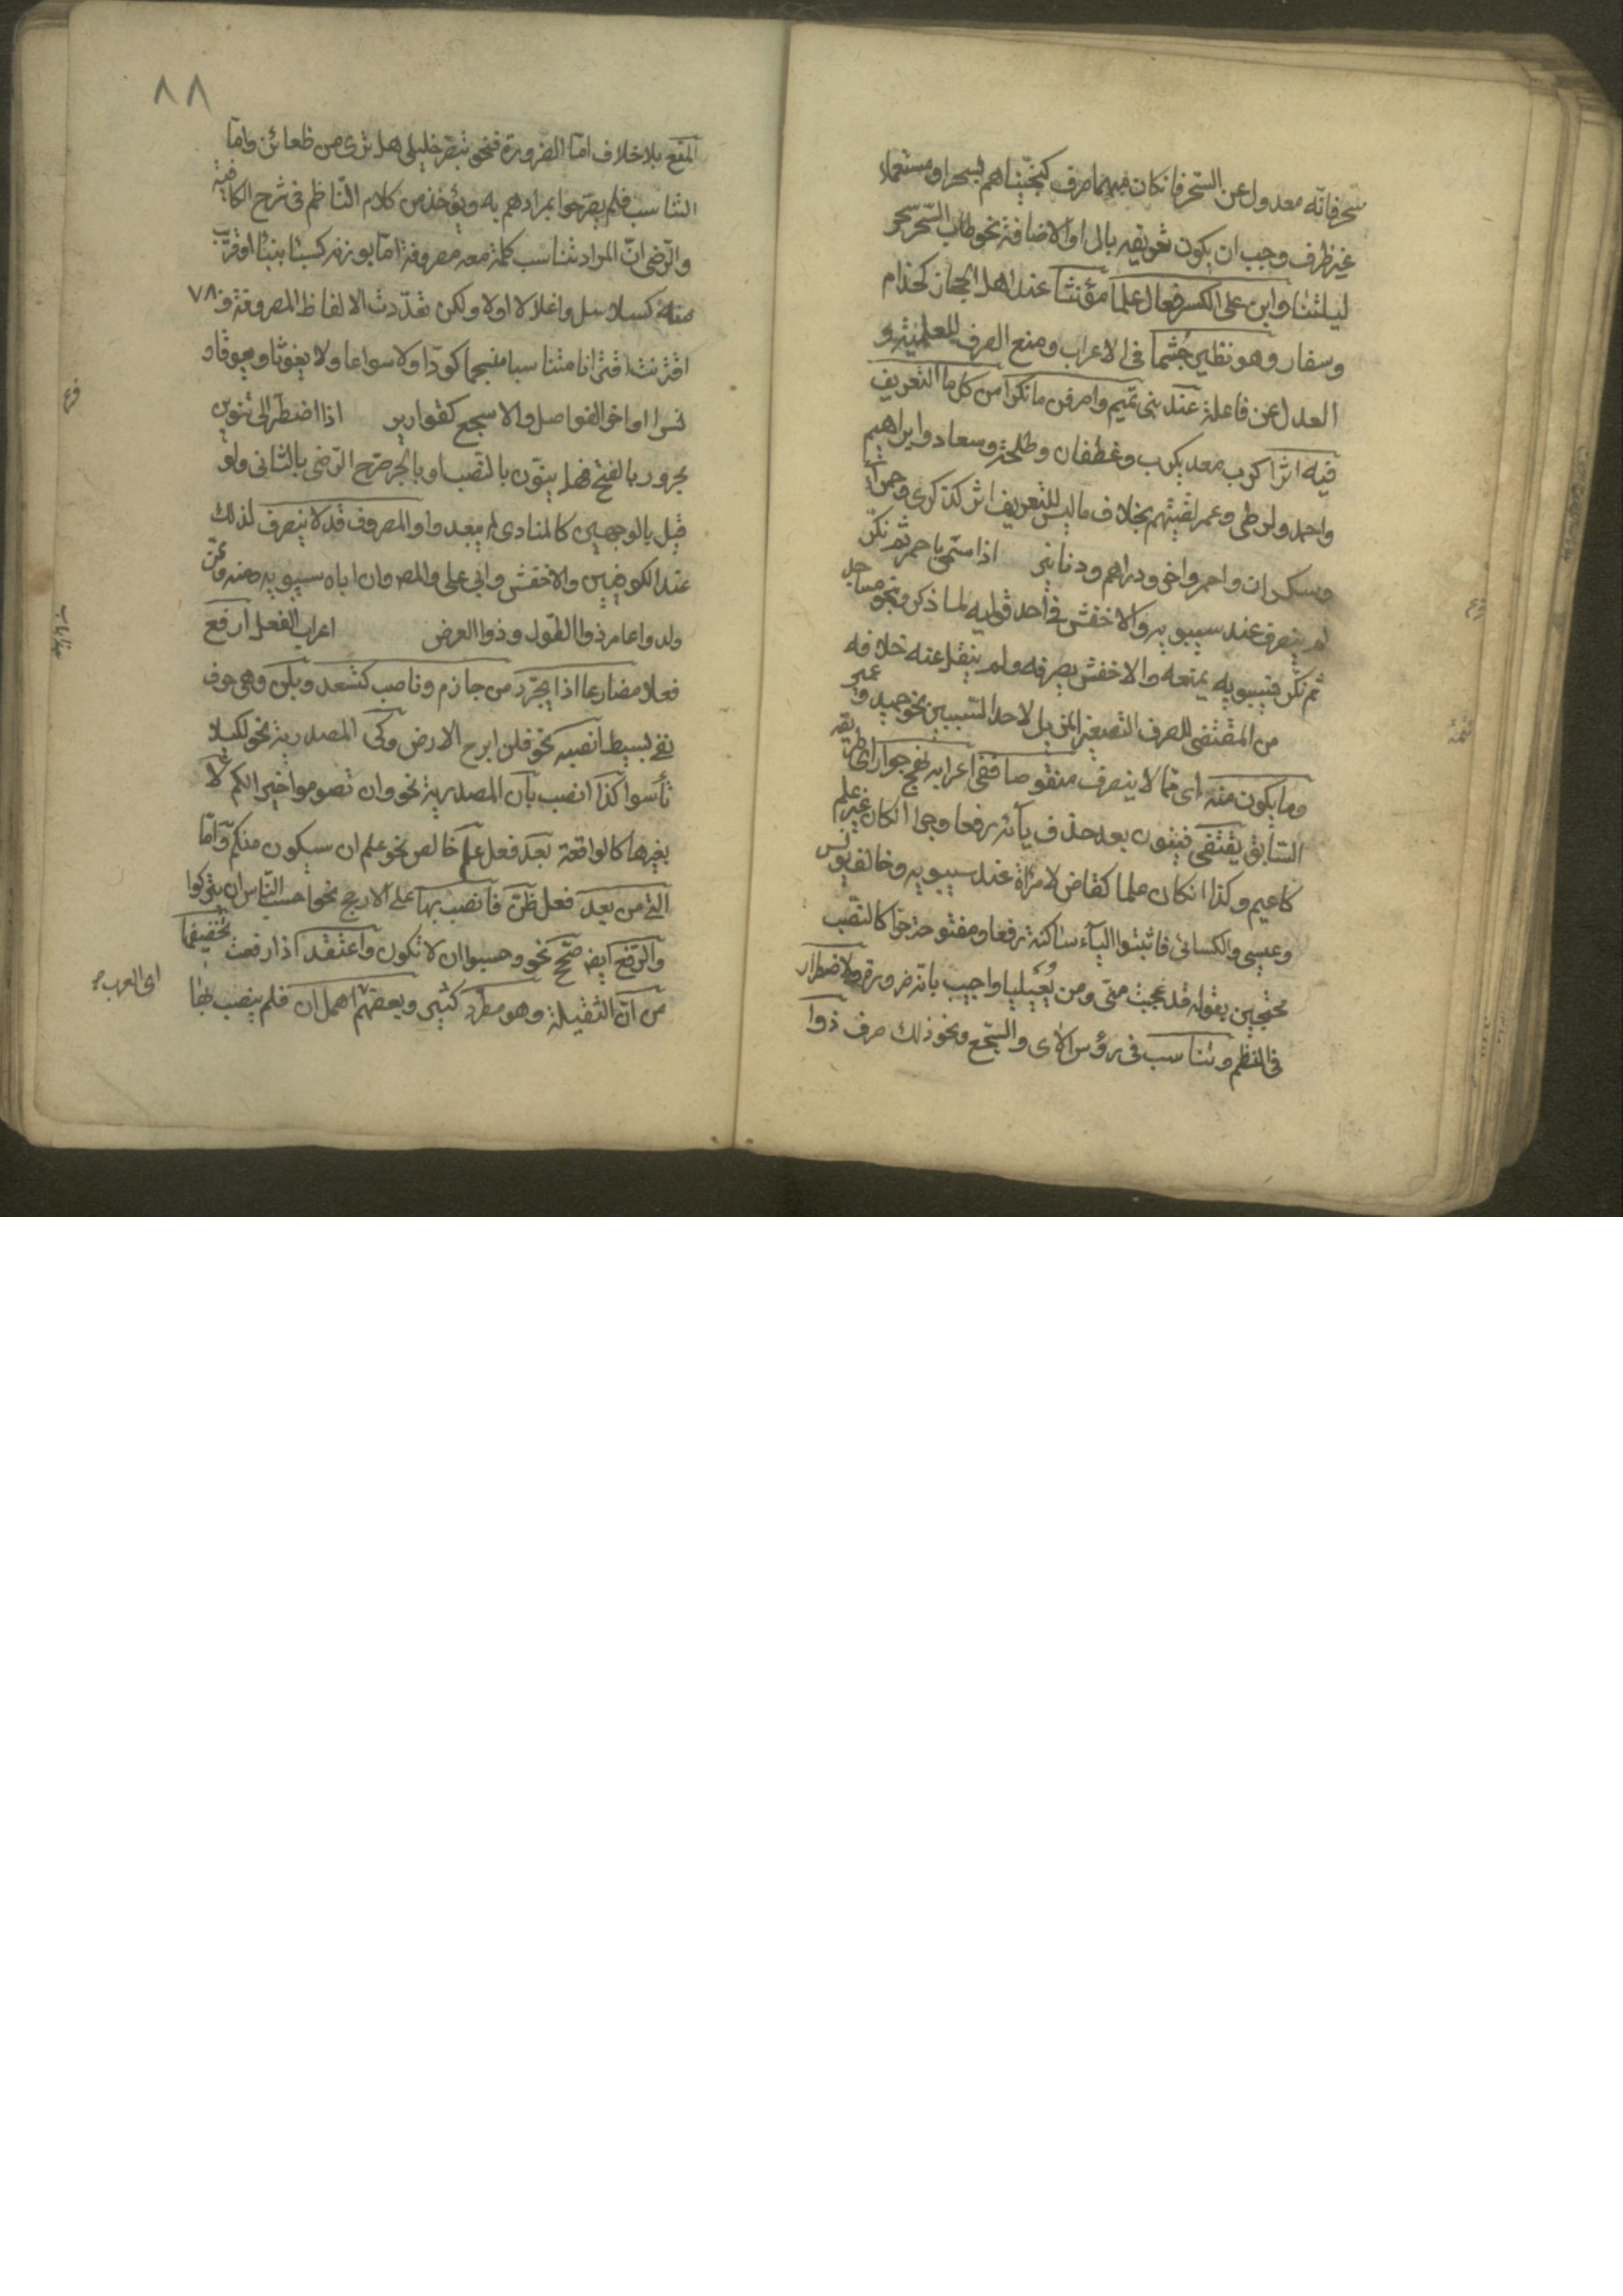 سحر فانه معدول عن السحر فان كان مبهما صرف كنجيناهم بسحر او مستعملا
غير ظرف وجب ان يكون تعريفه بال او الاضافة نحو طاب السحر سحر
ليلتنا وابن على الكسر فعال علما مؤنثا عند اهل الحجاز كحذام
وسفار وهو نظير جشما فى الاعراب ومنع الصرف للعلمية و
العدل عن فاعلة عند بنى تميم واصرفن ما نكرا من كل ما التعريف
فيه اثرا كرب معد يكرب وغطفان وطلحة وسعاد وابراهيم
واحمد وارطى وعمر لقيتهم بخلاف ما ليس للتعريف اثر كذكرى وحمراء
وسكران واحمر واخر ودراهم ودنانير اذا سمى باحمر ثم نكر
لم ينصرف عند سيبويه والاخفش فى احد قوليه لما ذكر ونحو مساجد
ثم نكر فسيبويه يمنعه والاخفش يصرفه ولم ينقل عنه خلافه
من المقتضى للصرف التصغير المزيل لاحد السببين نحو حميد و عمير
وما يكون منه اى مما لا ينصرف منقوصا ففى اعرابه نهج جوار اى طريقه
السابق يقتفى فينون بعد حذف يائه رفعا وجرا ان كان غير علم
كاعيم وكذا ان كان علما كقاض لامرأة عند سيبويه وخالف يونس
وعيسى والكسائى فاثبتوا الياء ساكنة رفعا ومفتوحة جرا كالنصب
محتجين بقوله قد عجبت منى ومن يعيليا واجيب بانه ضرورة ولاضطرار
فى النظم وتناسب فى رؤس الآى والسجع ونحو ذلك صرف ذوا
فرع
تتمة
٨٨
المنع بلا خلاف اما الضرورة فنحو تبصر خليلى هل ترى من ظعائن واما
التناسب فلم يصرحوا بمرادهم به ويؤخذ من كلام الناظم فى شرح الكافية
والرضى ان المراد تناسب كلمة معه مصروفة اما بوزنه كسبا بنبا او قريب
منه كسلاسل واغلالا او لا ولكن تعددت الالفاظ المصروفة و
٧٨
اقترنت اقترانا متناسبا منسجما كودا ولا سواعا ولا يغوثا ويعوقا و
نسرا او اخر الفواصل والاسجع كقوارير اذا اضطر الى تنوين
مجرور بالفتح فهل ينون بالنصب او بالجر صرح الرضى بالثانى ولو
قيل بالوجهين كالمنادى لم يبعد و المصروف قد لا ينصرف لذلك
عند الكوفيين والاخفش وابى على والمصـ وان اباه سيبويه ومنه وممن
ولدوا عامر ذو الطول وذو العرض اعراب الفعل ارفع
فعلا مضارعا اذا يجرد من جازم وناصب كتسعد وبلن وهى حرف
نفى بسيط انصبه نحو فلن ابرح الارض وكى المصدرية نحو لكيلا
تأسوا كذا انصب بان المصدرية نحو وان تصوموا خير الكم لا
بغيرها كالواقعة بعد فعل علم خالص نحو علم ان سيكون منكم و اما
التى من بعد فعل ظن فانصب بها على الارجح نحو احسب الناس ان يتركوا
والرفع ايضـ صحح نحو وحسبوا ان لا تكون واعتقد اذا رفعت تخفيفها
من ان الثقيلة وهو مطرد كثير وبعضهم اهمل ان فلم ينصب بها
اى العرب
فرع
هذا باب